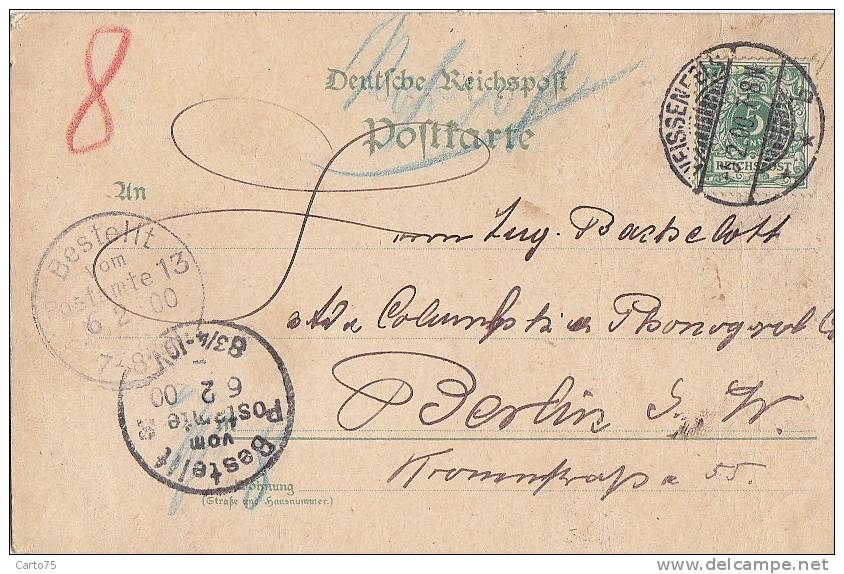 8
Deutsche Reichspost
Postkarte
WEISSENFELS
5.2.00. 7-8N
5
REICHSPOST
An
Ing. Bachelott
Columbia Phonograph Co
Berlin S. W.
Kronenstraße 55.
Bestellt
vom
Postamte 13
6. 2. 00
7-8¼
Bestellt
vom
Postamte
6 2 00
83/4-10
Wohnung
(Straße und Hausnummer.)
Carto75
www.delcampe.net